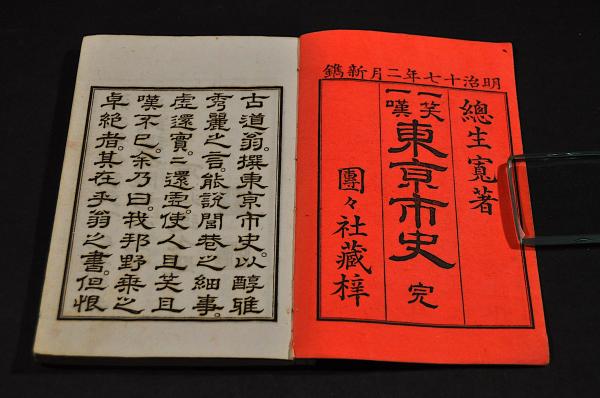 明治十七年二月新鐫
總生寬著
一笑
一嘆
東亰市史 完
團々社藏梓
古道翁。撰東京市史。以醇雅
秀麗之言。能說閭巷之細事。
虛還實。二還虛。使人且笑且
嘆不已。余乃曰。我邦野乘之
卓絶者。其在乎翁之書。但恨